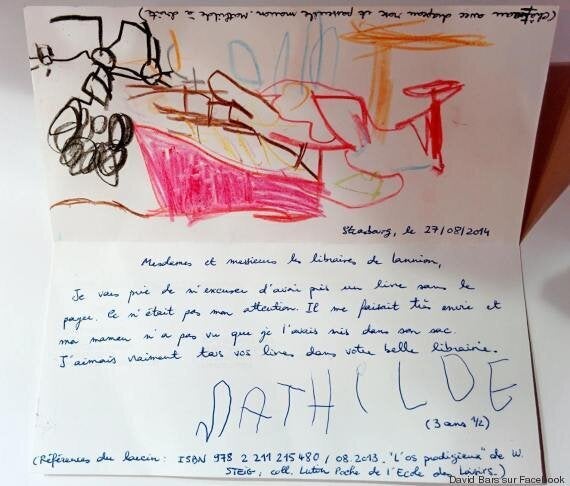 (Château avec chapeau rose et passerelle marron. Mathilde à droite)
Strasbourg, le 27/08/2014
Mesdames et messieurs les libraires de Lannion,
Je vous prie de m'excuser d'avoir pris un livre sans le
payer. Ce n'était pas mon attention. Il me faisait très envie et
ma maman n'a pas vu que je l'avais mis dans son sac.
J'aimais vraiment tous vos livres dans votre belle librairie.
MATHILDE
(3 ans 1/2)
(Références du larcin : ISBN 978 2 211 215480 / 08.2013. "L'os prodigieux" de W.
STEIG, coll. Lutin Poche de l'Ecole des Loisirs.)
David Bars sur Facebook